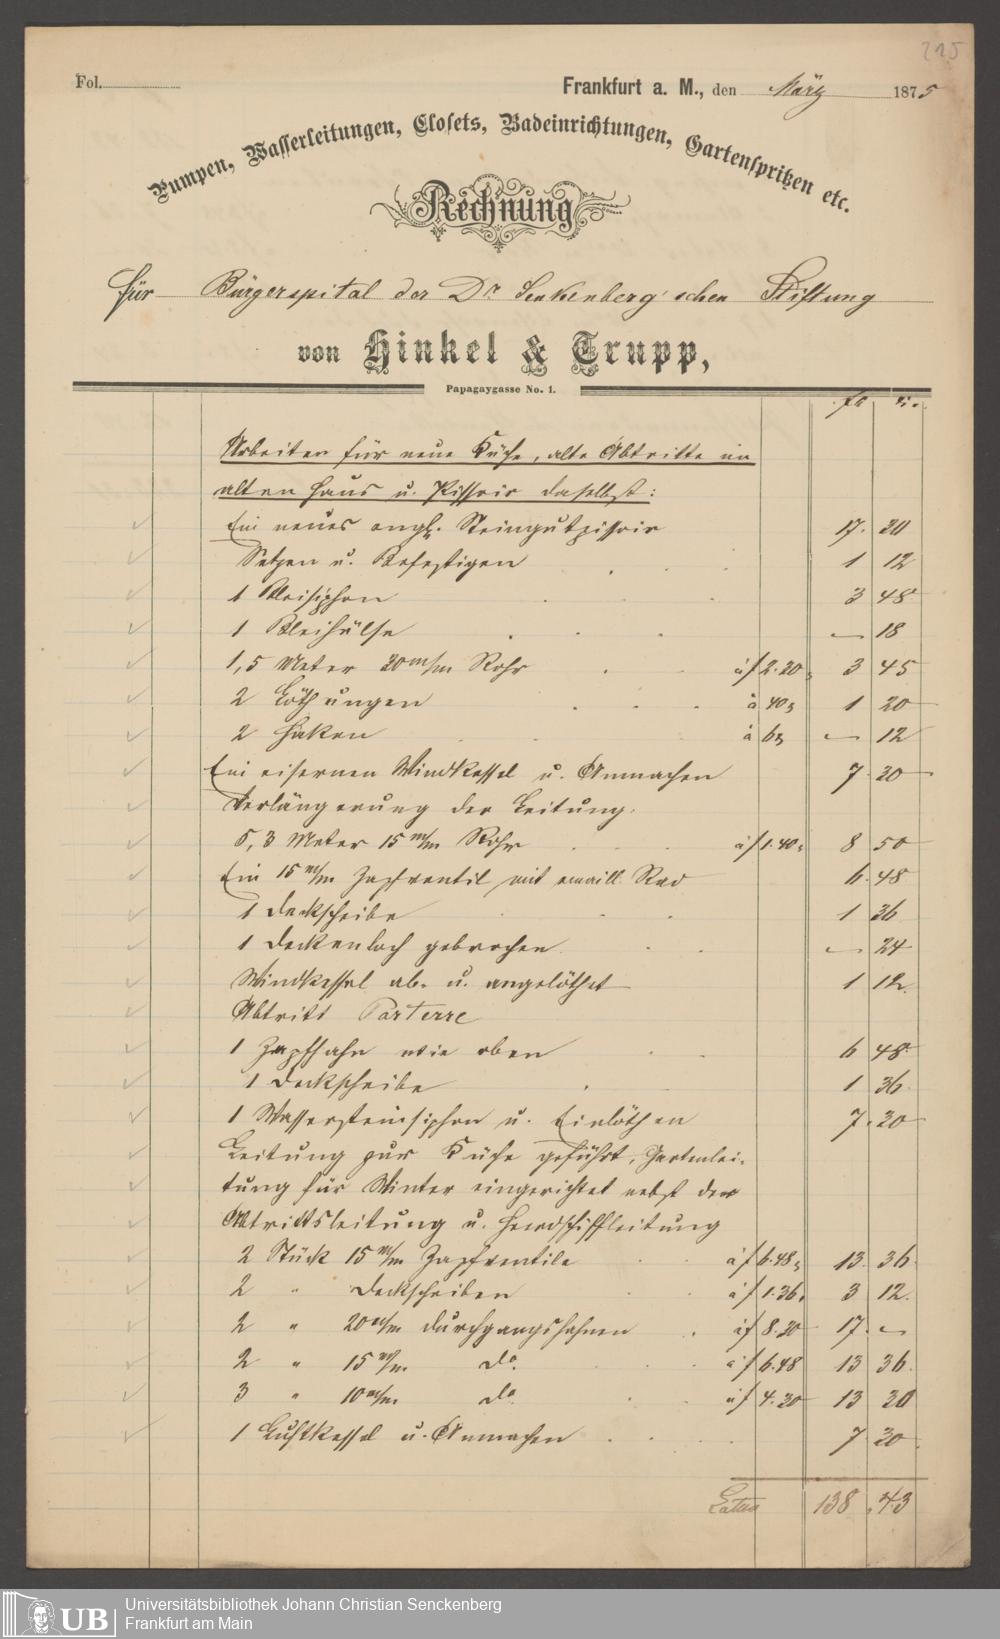 215
Fol.
Frankfurt a. M., den März 1875
Pumpen, Wasserleitungen, Closets, Badeinrichtungen, Gartenspritzen etc.
Rechnung
für Bürgerspital der Dr Senkenberg'schen Stiftung
von Hinkel & Trupp,
Papagaygasse No. 1.
fl x.
Arbeiten für neue Küche, alte Abtritte im
alten Haus u. Pissoir daselbst:
Ein neues engl. Steingutpissoir 17. 30
Setzen u. Befestigen 1 12
1 Bleisiphon 3 48
1 Bleihülse — 18
1,5 Meter 30 m/m Rohr à f 2.30 3 45
2 Löthungen à 40 1 20
2 Haken à 6 — 12
Ein eisernen Windkessel u. Anmachen 7. 30
Verlängerung der Leitung.
5,3 Meter 15 m/m Rohr à f 1.40 8 50
Ein 15 m/m Zapfventil mit emaill. Rad 6. 48
1 Deckscheibe 1 36
1 Deckenloch gebrochen — 24
Windkessel ab- u. angelöthet 1 12.
Abtritt Parterre
1 Zapfhahn wie oben 6 48
1 Deckscheibe 1 36
1 Wassersteinsiphon u. Einlöthen 7. 30
Leitung zur Küche geführt, Gartenlei-
tung für Winter eingerichtet nebst der
Abtrittsleitung u. Herdschiffleitung
2 Stück 15 m/m Zapfventile à f 6.48 13. 36.
2 " Deckscheiben à f 1.36 3 12.
2 " 20 m/m Durchgangshahnen à f 8.30 17. —
2 " 15 m/m do. à f 6.48 13 36.
3 " 10 m/m do à f 4.30 13 30
1 Luftkessel u. Anmachen 7 30
Latus 138. 43
UB Universitätsbibliothek Johann Christian Senckenberg
Frankfurt am Main